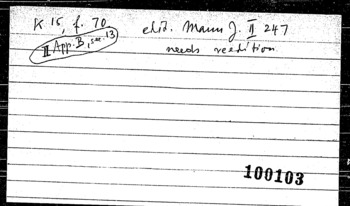 K 15, f. 70 edid. Mann J. II 247
II App. B, sec. 13 needs reedition.
100103